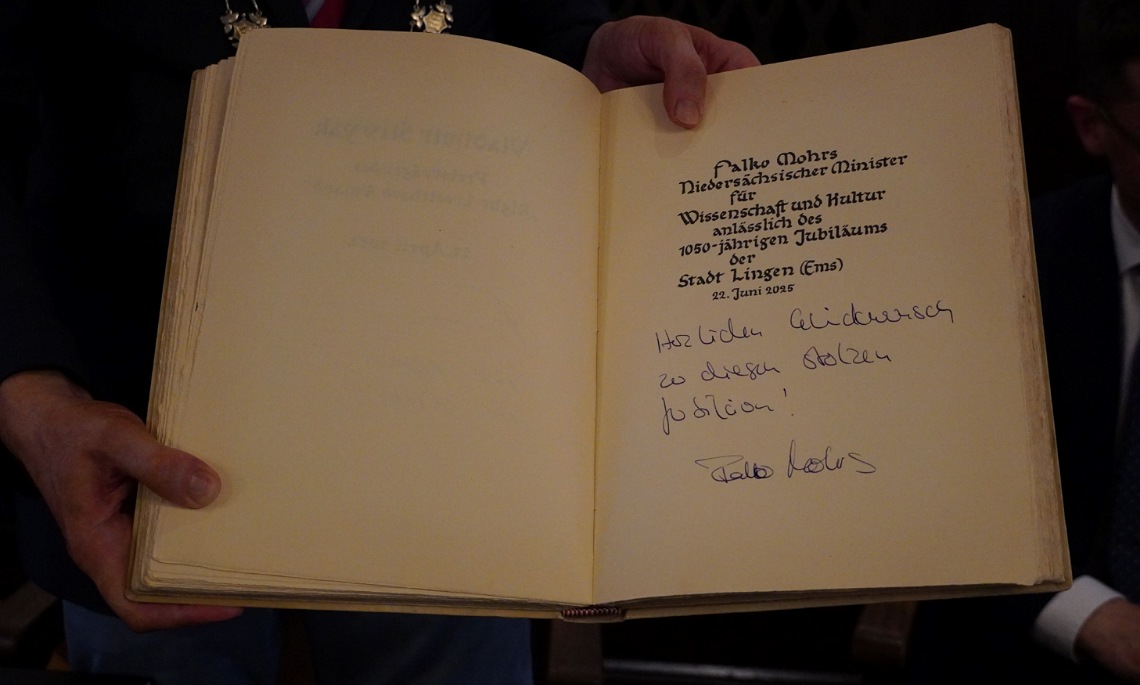 Falko Mohrs
Niedersächsischer Minister
für
Wissenschaft und Kultur
anlässlich des
1050-jährigen Jubiläums
der
Stadt Lingen (Ems)
22. Juni 2025
Herzlichen Glückwunsch
zu diesem stolzen
Jubiläum!
Falko Mohrs